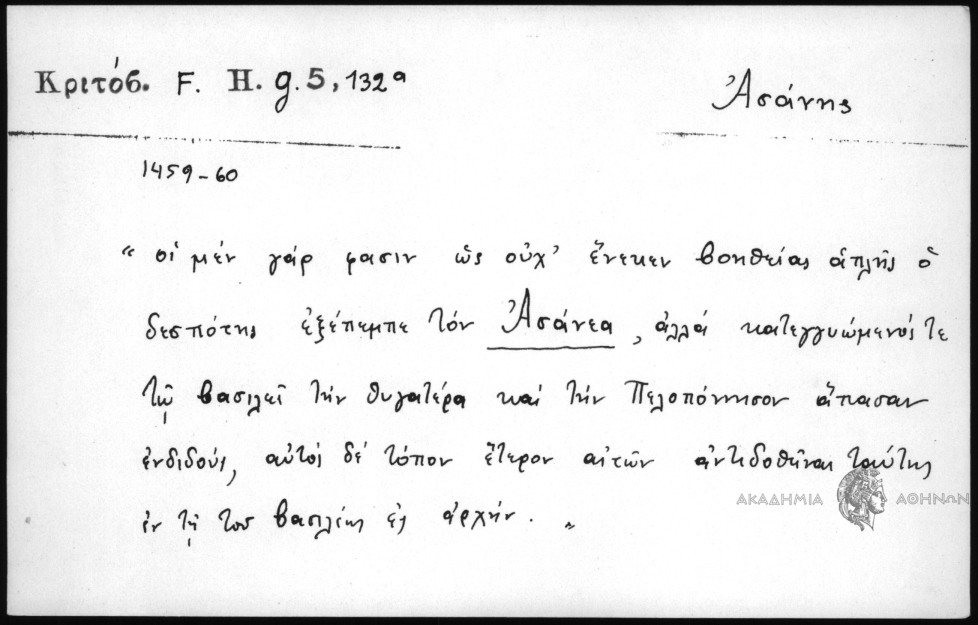 Κριτόβ. F. H. g. 5, 132a
Ἀσάνης
1459-60
“ οἱ μέν γάρ φασιν ὡς οὐχ' ἕνεκεν βοηθείας ἁπλῆς ὁ
δεσπότης ἐξέπεμπε τόν Ἀσάνεα, ἀλλά κατεγγυώμενός τε
τῷ βασιλεῖ τήν θυγατέρα καί τήν Πελοπόννησον ἅπασαν
ἐνδιδούς, αὐτός δέ τόπον ἕτερον αἰτῶν ἀντιδοθῆναι ταύτης
ΑΚΑΔΗΜΙΑ ΑΘΗΝΩΝ
ἐν τῇ τοῦ βασιλέως ἐς ἀρχήν. „